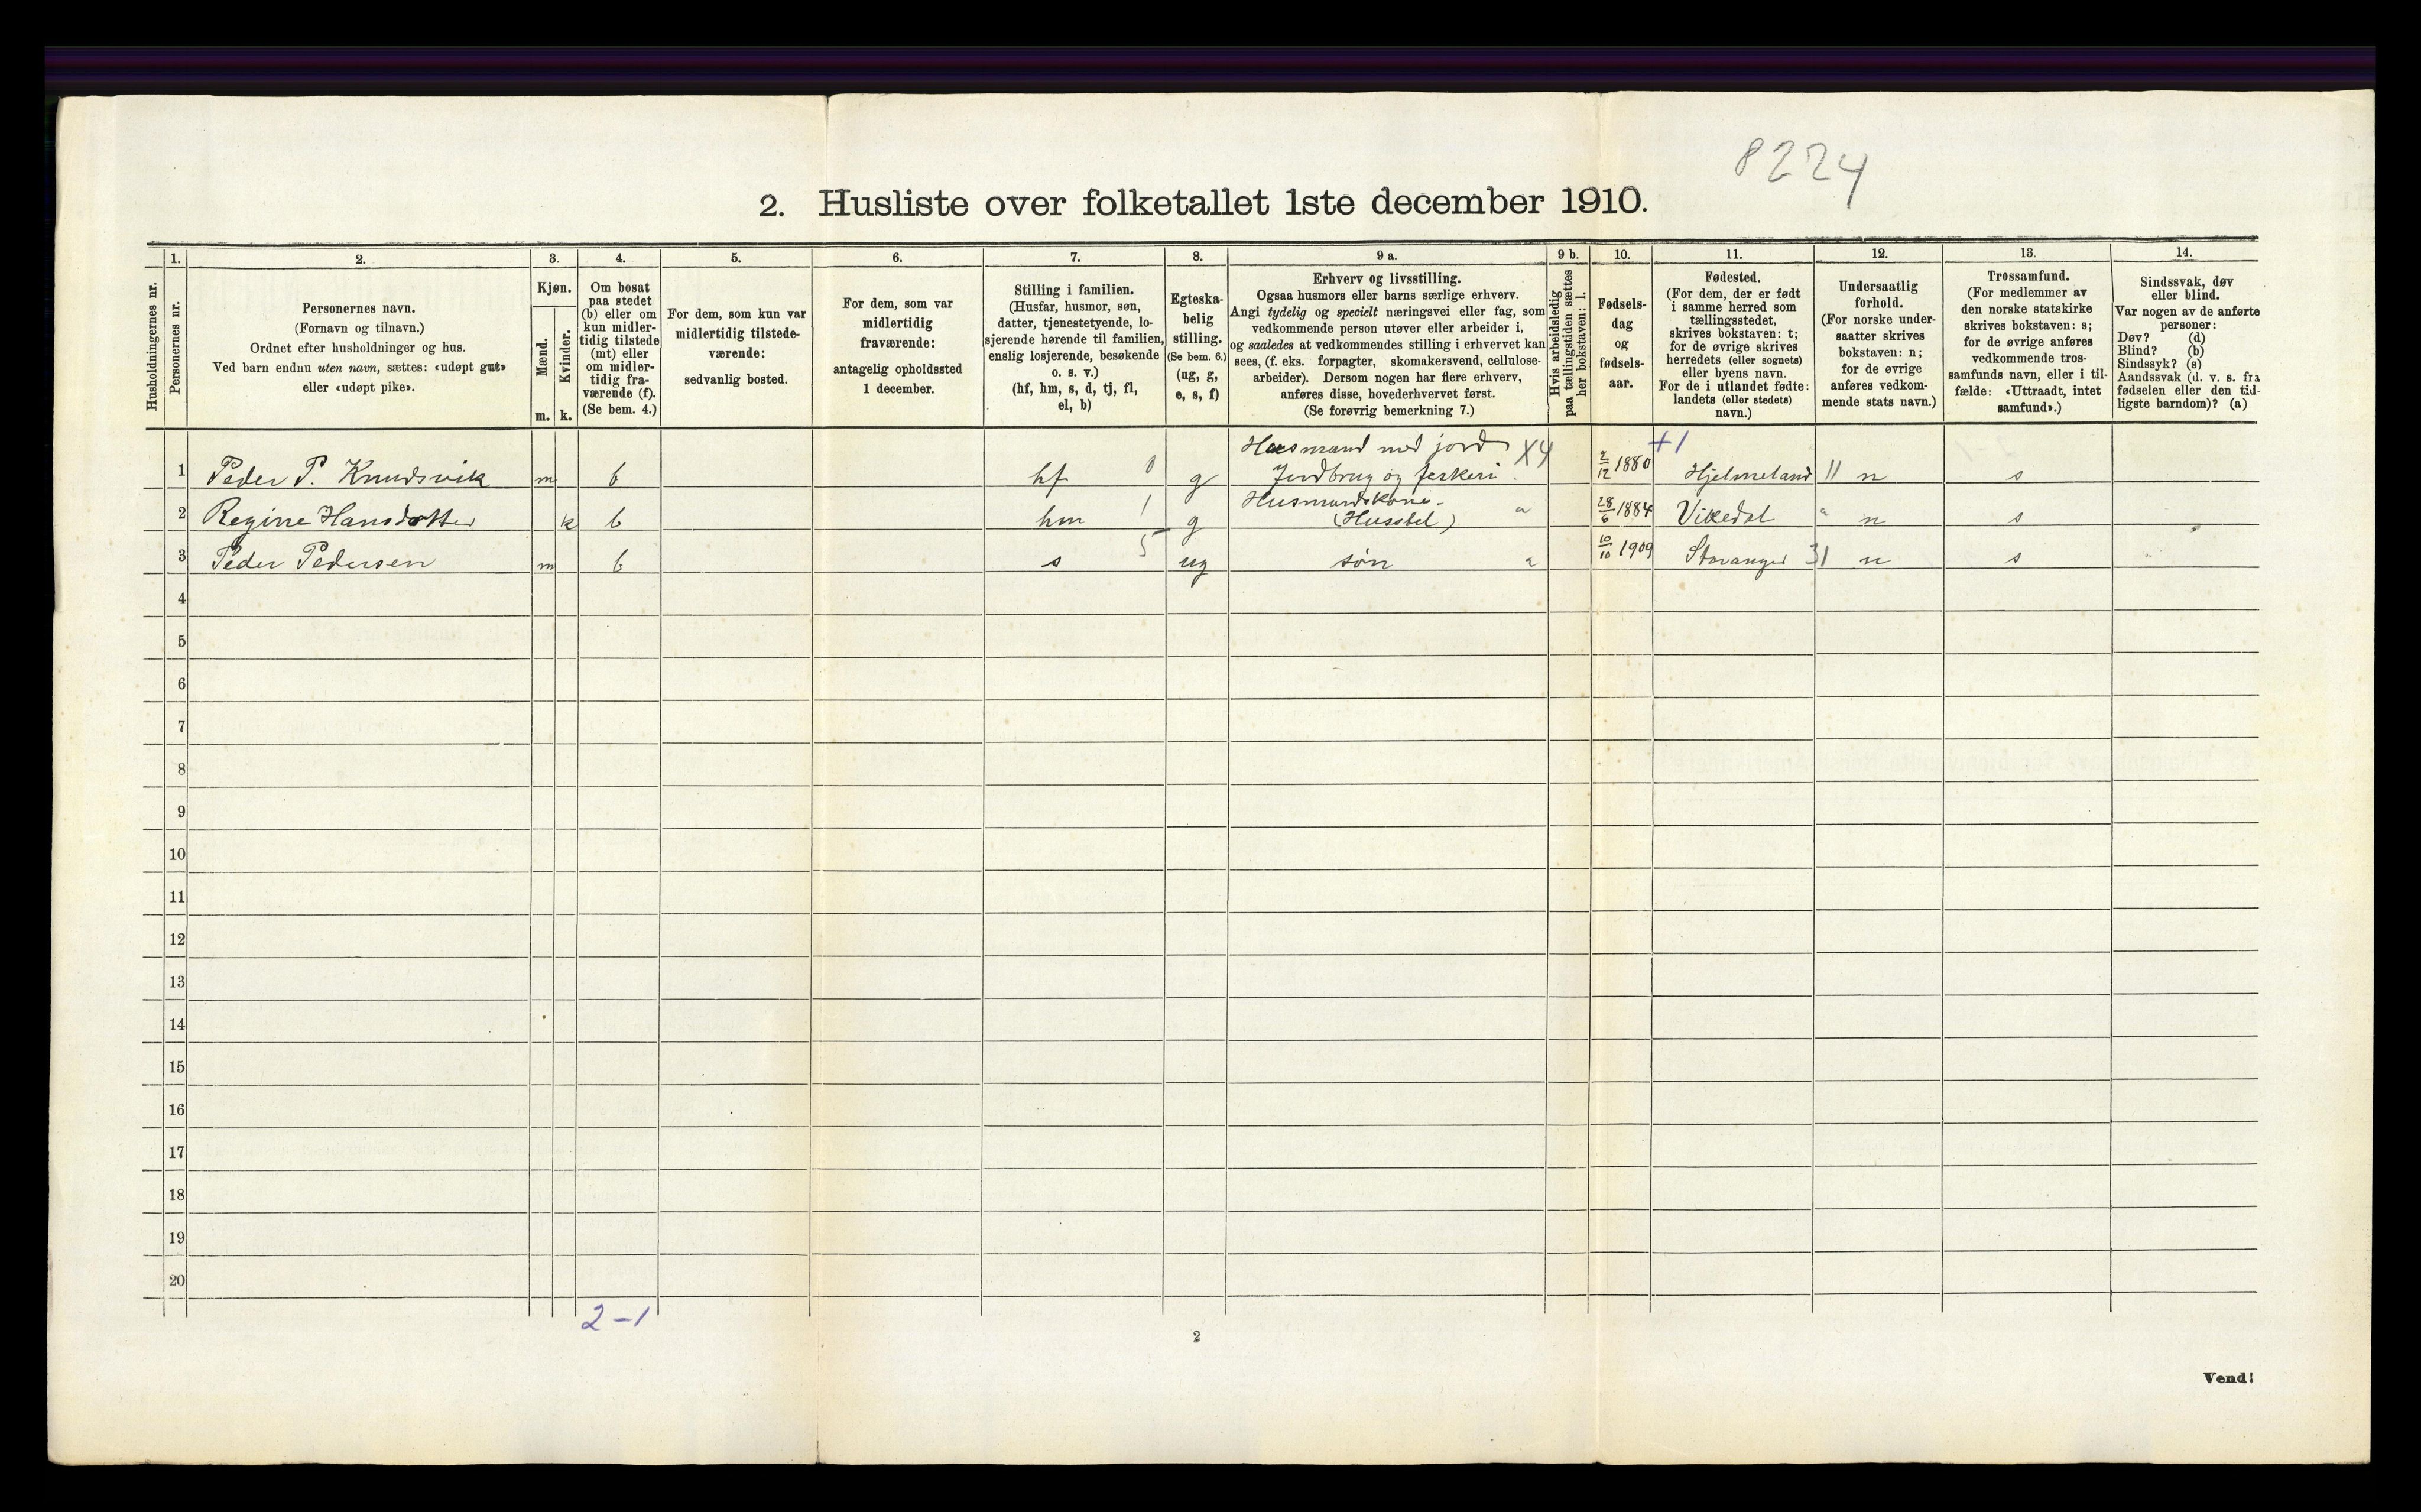 8224
2. Husliste over folketallet 1ste december 1910.
Husholdningernes nr.
1.
Personernes nr.
2.
Personernes navn.
(Fornavn og tilnavn.)
Ordnet efter husholdninger og hus.
Ved barn endnu uten navn, sættes: «udøpt gut»
eller «udøpt pike».
3.
Kjøn.
Mænd.
Kvinder.
m. k.
4.
Om bosat
paa stedet
(b) eller om
kun midler-
tidig tilstede
(mt) eller
om midler-
tidig fra-
værende (f).
(Se bem. 4.)
5.
For dem, som kun var
midlertidig tilstede-
værende:
sedvanlig bosted.
6.
For dem, som var
midlertidig
fraværende:
antagelig opholdssted
1 december.
7.
Stilling i familien.
(Husfar, husmor, søn,
datter, tjenestetyende, lo-
sjerende hørende til familien,
enslig losjerende, besøkende
o. s. v.)
(hf, hm, s, d, tj, fl,
el, b)
8.
Egteska-
belig
stilling.
(Se bem. 6.)
(ug, g,
e, s, f)
9 a.
Erhverv og livsstilling.
Ogsaa husmors eller barns særlige erhverv.
Angi tydelig og specielt næringsvei eller fag, som
vedkommende person utøver eller arbeider i,
og saaledes at vedkommendes stilling i erhvervet kan
sees, (f. eks. forpagter, skomakersvend, cellulose-
arbeider). Dersom nogen har flere erhverv,
anføres disse, hovederhvervet først.
(Se forøvrig bemerkning 7.)
9 b.
Hvis arbeidsledig
paa tællingstiden sættes
her bokstaven: l.
10.
Fødsels-
dag
og
fødsels-
aar.
11.
Fødested.
(For dem, der er født
i samme herred som
tællingsstedet,
skrives bokstaven: t;
for de øvrige skrives
herredets (eller sognets)
eller byens navn.
For de i utlandet fødte:
landets (eller stedets)
navn.)
12.
Undersaatlig
forhold.
(For norske under-
saatter skrives
bokstaven: n;
for de øvrige
anføres vedkom-
mende stats navn.)
13.
Trossamfund.
(For medlemmer av
den norske statskirke
skrives bokstaven: s;
for de øvrige anføres
vedkommende tros-
samfunds navn, eller i til-
fælde: «Uttraadt, intet
samfund».)
14.
Sindssvak, døv
eller blind.
Var nogen av de anførte
personer:
Døv? (d)
Blind? (b)
Sindssyk? (s)
Aandssvak (d. v. s. fra
fødselen eller den tid-
ligste barndom)? (a)
Husmand med jord X4 +1
1 Peder P. Knudsvik m b hf 0 g Jordbrug og feskeri. 2/12 1880 Hjelmeland 11 n s
Husmandskone-
2 Regine Hansdotter k b hm 1 g (Husstel) " 28/6 1884 Vikedal " n s
3 Peder Pedersen m b s 5 ug søn " 10/10 1909 Stavanger 31 n s
4
5
6
7
8
9
10
11
12
13
14
15
16
17
18
19
20
2-1
2
Vend!